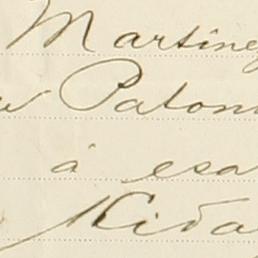 Martine
Palom
á esa
Kida